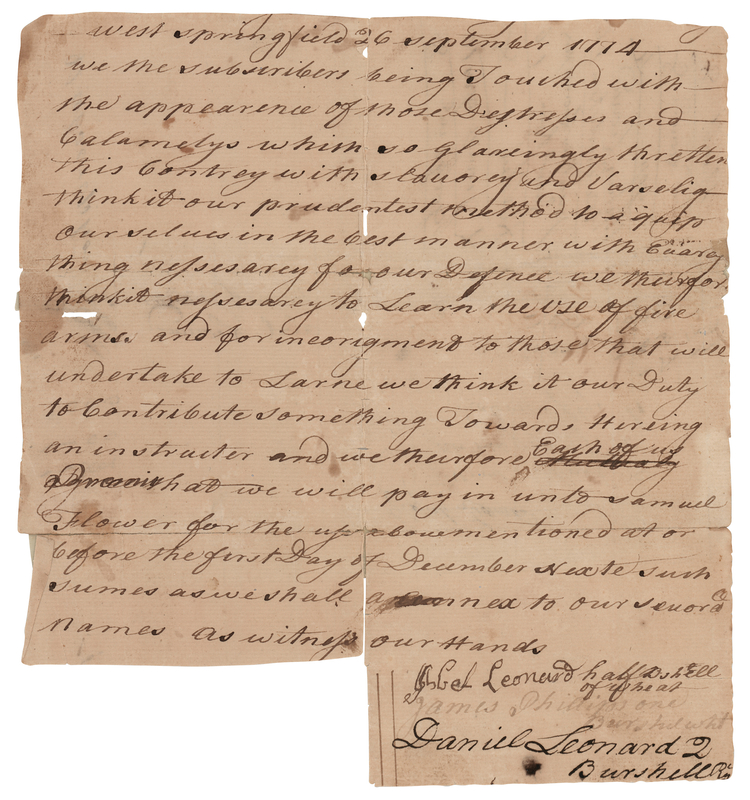 west springfield 26 september 1774
we the subscribers being Touched with
the appearence of those Destresses and
Calamelys which so glareingly thretten
this Contrey with slavorey and
think it our prudentest method to a quip
our selves in the best manner with Evarey
thing nessesarey for our Defence we thurfor
think it nessesarey to Learn the use of fire
arms and for incorigment to those that will
undertake to Larne we think it our Duty
to Contribute something Towards Hireing
an instructer and we thurfore Each of us
that we will pay in unto samuel
Flower for the use abovementioned at or
before the first Day of December Nexte such
sumes as we shall annex to our sevord
names as witness our Hands
Abel Leonard half a Bshell
of wheat
James Phillips one
Burshel wht
Daniel Leonard 2
Burshell